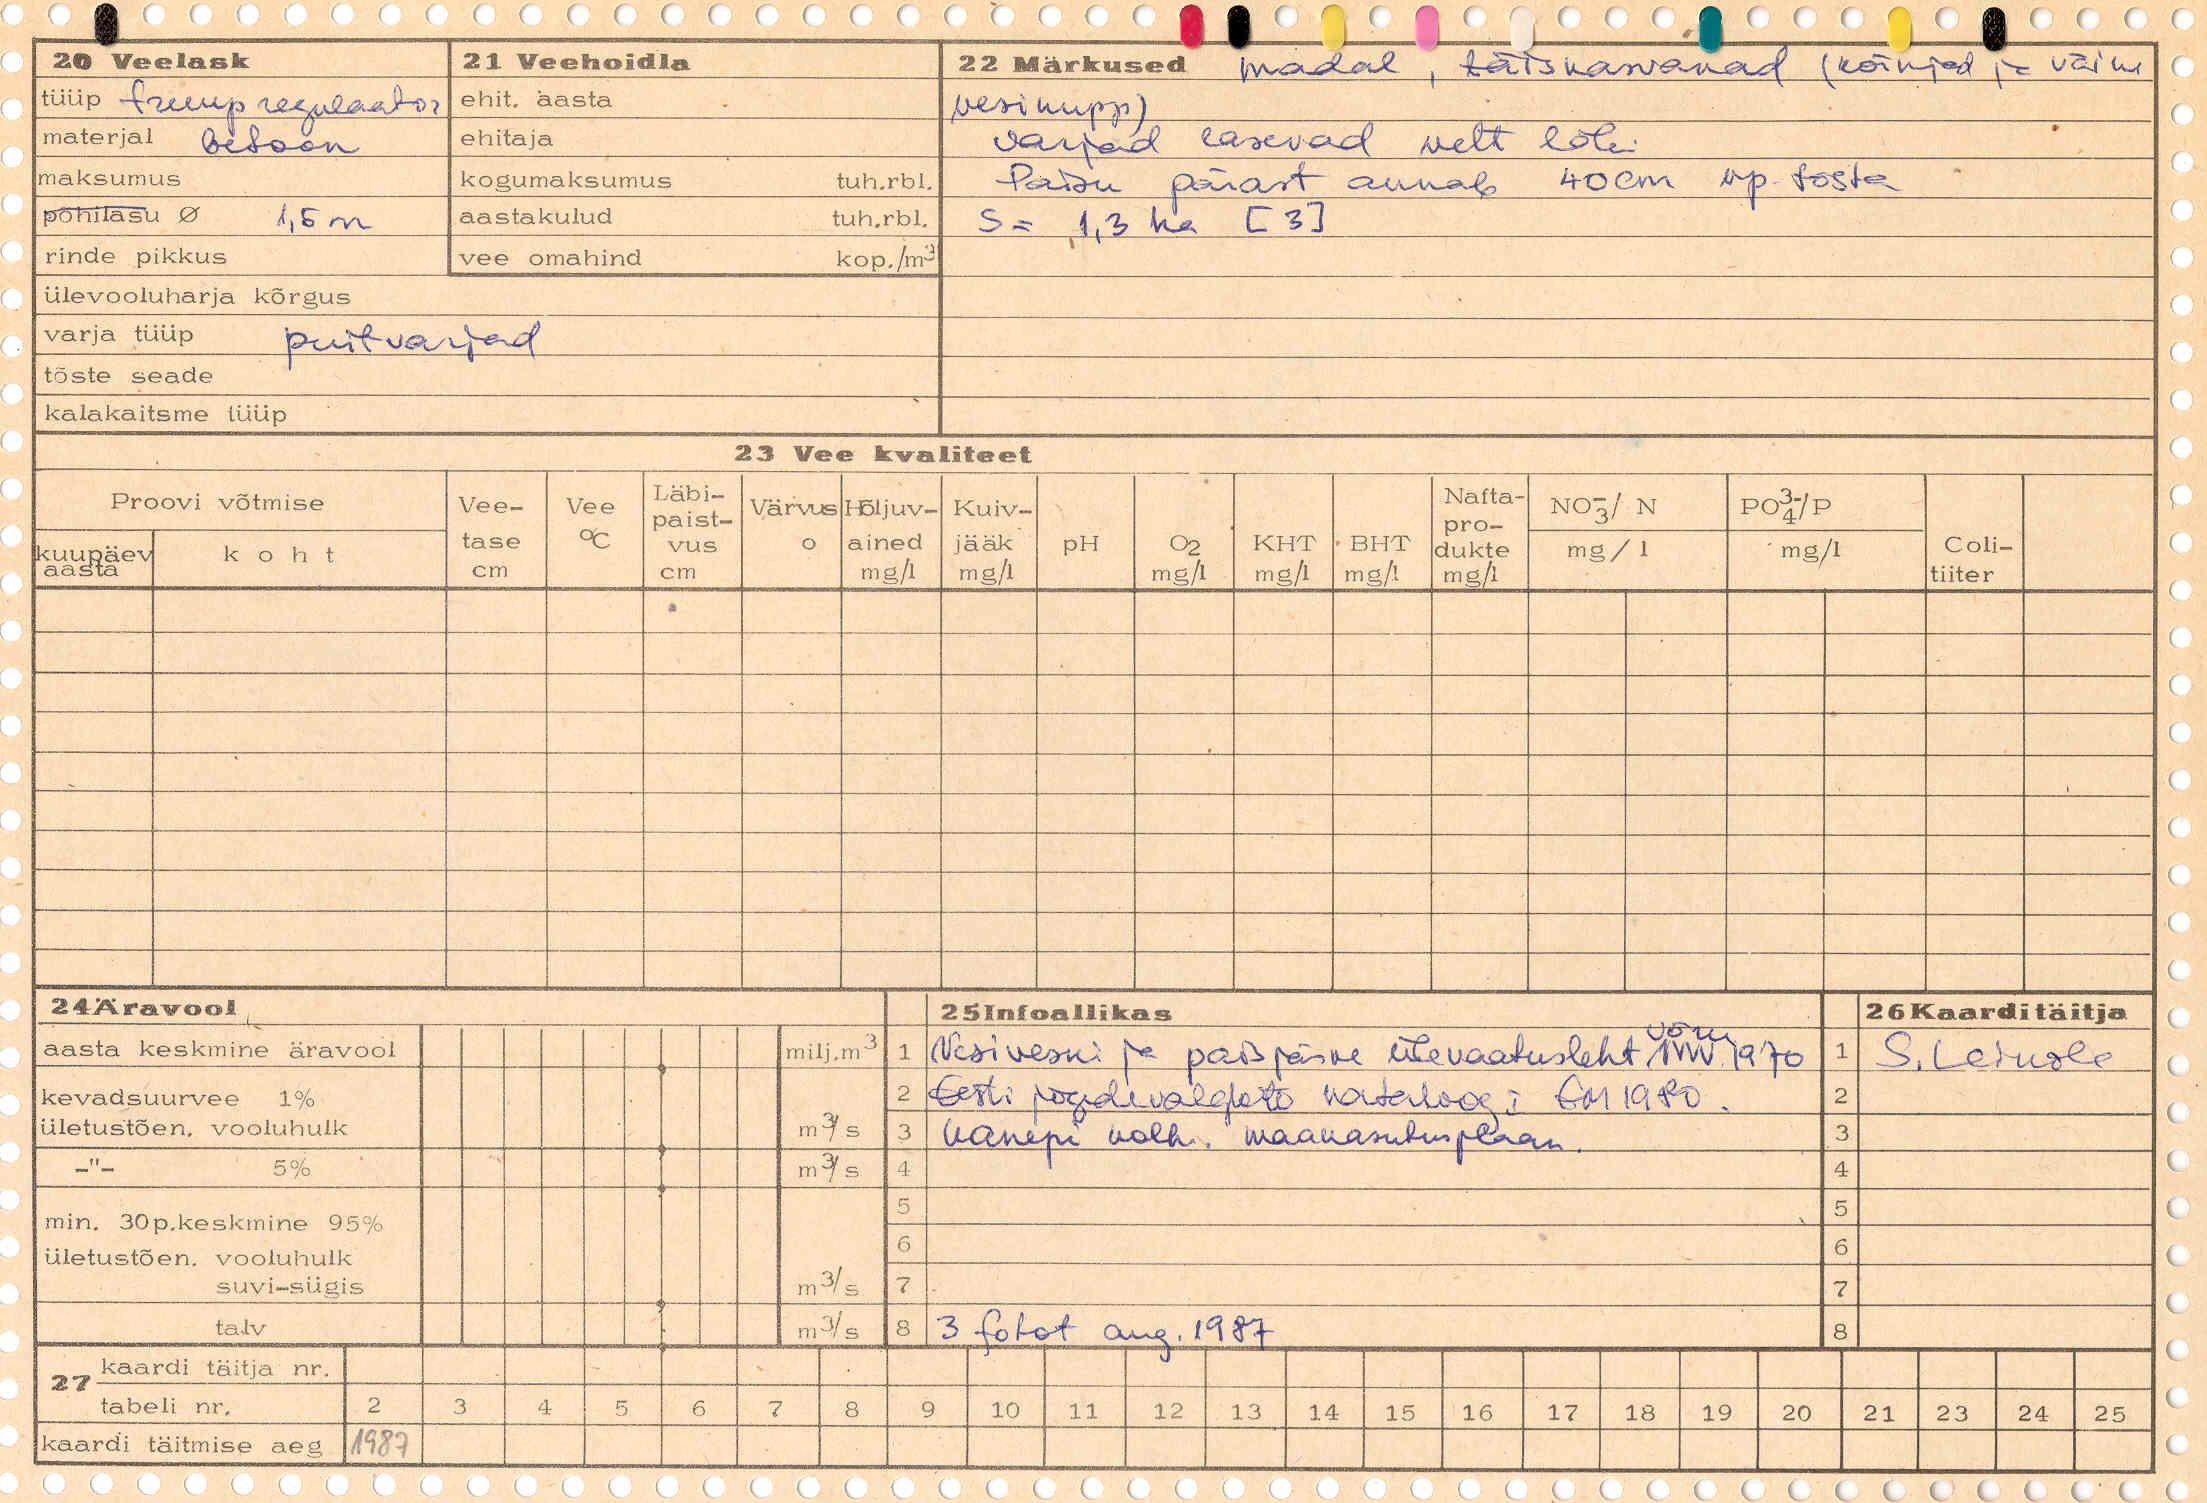 20 Veelask
tüüp truupregulaator
materjal betoon
maksumus
põhilasu Ø 1,5 m
rinde pikkus
ülevooluharja kõrgus
varja tüüp puitvarjad
tõste seade
kalakaitsme tüüp
21 Veehoidla
ehit. aasta
ehitaja
kogumaksumus tuh.rbl.
aastakulud tuh.rbl.
vee omahind kop./m³
22 Märkused madal, täiskasvanud (kõrkjad ja väike
vesikupp)
varjad lasevad vett läbi
Paisu pärast annab 40cm vp. tõsta
S = 1,3 ha [3]
23 Vee kvaliteet
Proovi võtmise
kuupäev aasta
koht
Vee-
tase
cm
Vee
°C
Läbi-
paist-
vus
cm
Värvus
o
Hõljuv-
ained
mg/l
Kuiv-
jääk
mg/l
pH
O2
mg/l
KHT
mg/l
BHT
mg/l
Nafta-
pro-
dukte
mg/l
NO3⁻/ N
mg/l
PO4³⁻/P
mg/l
Coli-
tiiter
24 Äravool
aasta keskmine äravool milj.m³
kevadsuurvee 1%
ületustõen. vooluhulk m³/s
-"- 5% m³/s
min. 30p.keskmine 95%
ületustõen. vooluhulk
suvi-sügis m³/s
talv m³/s
25 Infoallikas
1 Vesiveski ja paisjärve ülevaatusleht Võru 1970
2 Eesti jõgede valglate kataloog i EM 1980.
3 Kanepi kolh. maakasutusplaan.
4
5
6
7
8 3 fotot aug. 1987
26 Kaarditäitja
1 S. Leinsle
2
3
4
5
6
7
8
27 kaardi täitja nr.
tabeli nr. 2 3 4 5 6 7 8 9 10 11 12 13 14 15 16 17 18 19 20 21 23 24 25
kaardi täitmise aeg 1987